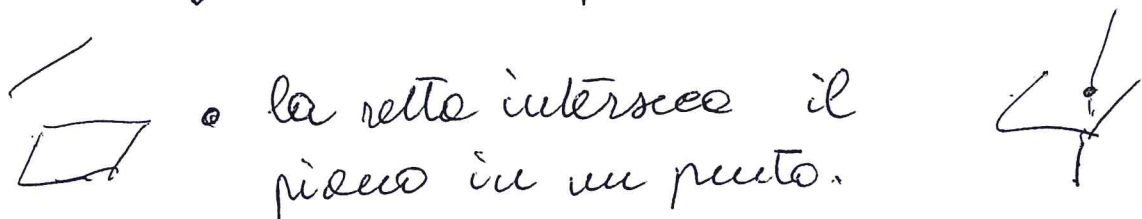 • la retta interseca il
piano in un punto.